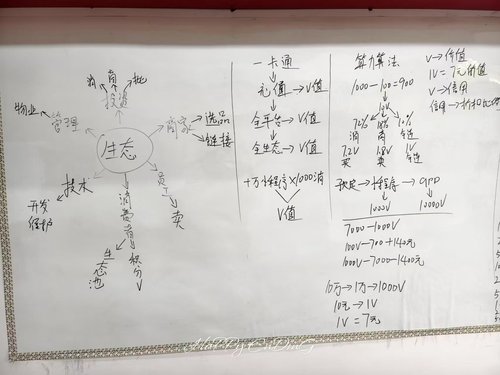 消 商 批
投资
物业
管理
商家
选品
链接
生态
技术
开发
维护
消费者
生态池
积分V
员工
卖
一卡通
充值→V值
全平台→V值
全生态→V值
+万小程序×1000消
V值
算力算法
1000-100=900
10V
72% 18% 10%
消 商 全链
7.2V 1.8V 1V
卖 卖
小程序→app
1000V 10000V
7000-1000V
100V-700+140元
1000V-7000-1400元
10万→1万→1000V
10元→1V
1V=7元
V→价值
1V=7元价值
V→信用